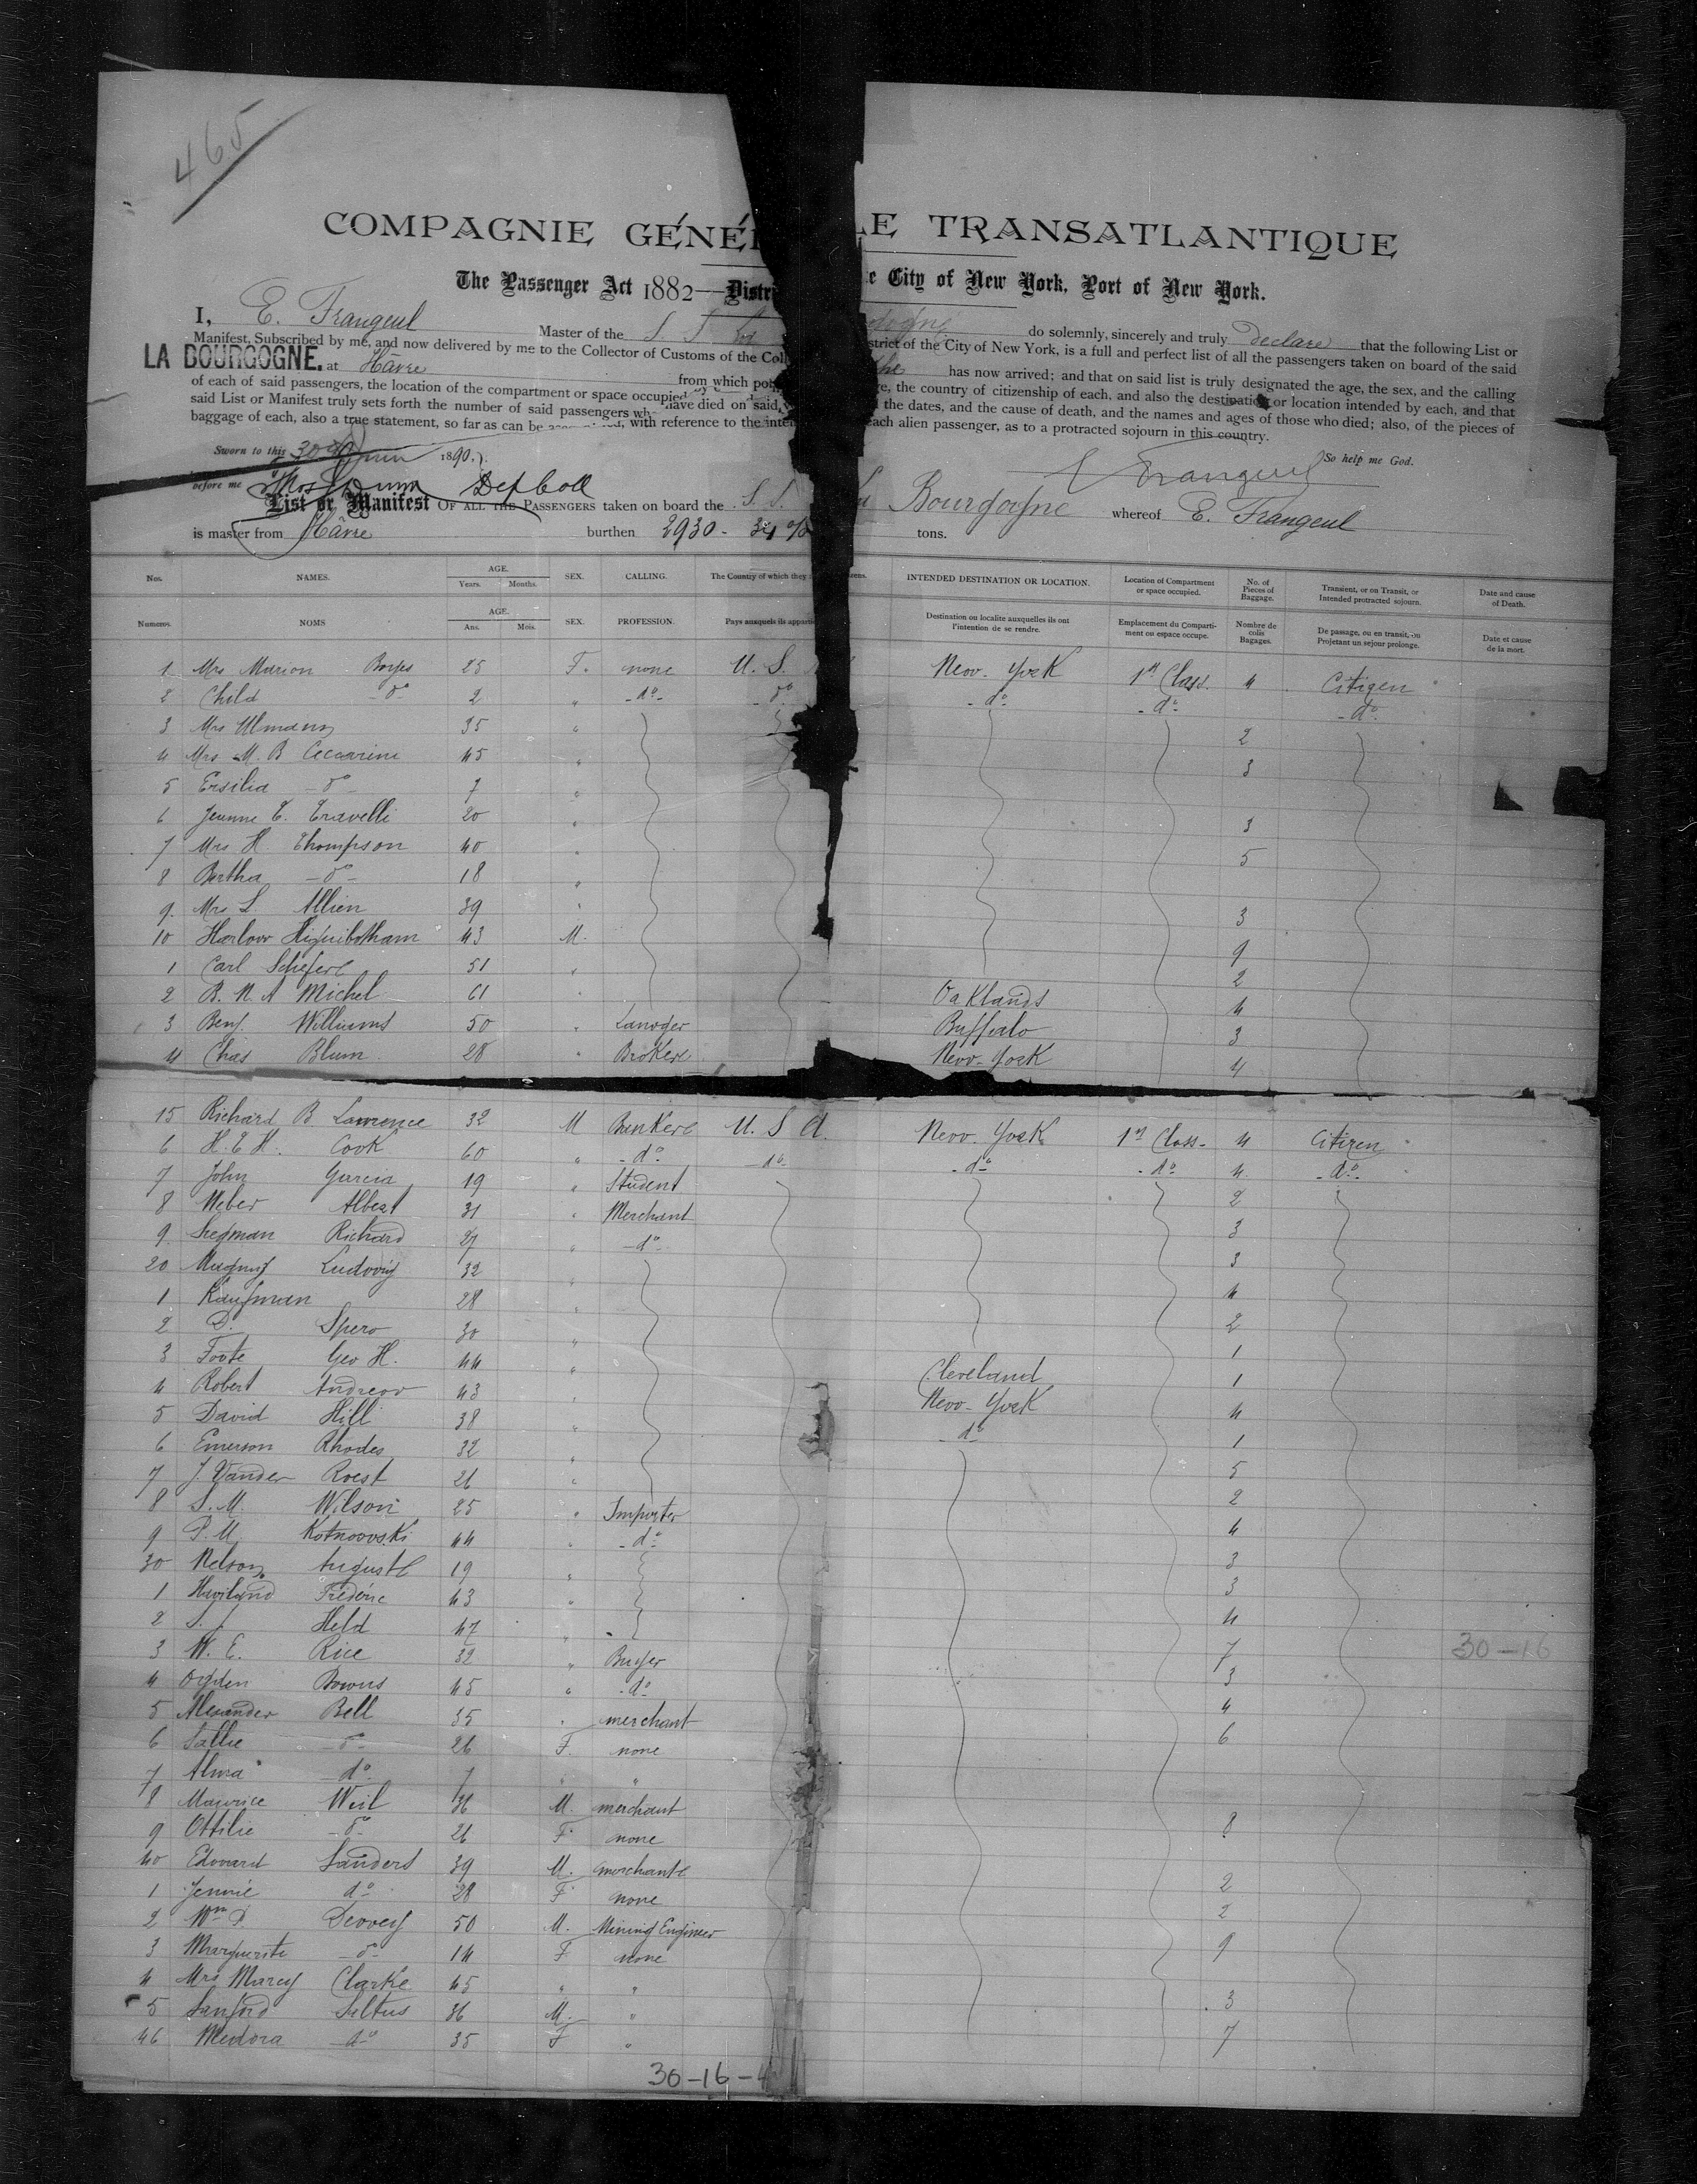 465
COMPAGNIE GÉNÉ LE TRANSATLANTIQUE
The Passenger Act 1882 — Distri e City of New York, Port of New York.
I, E. Frangeul Master of the S. S. La do solemnly, sincerely and truly declare that the following List or
Manifest, Subscribed by me, and now delivered by me to the Collector of Customs of the Coll strict of the City of New York, is a full and perfect list of all the passengers taken on board of the said
LA BOURGOGNE. at Hâvre from which port has now arrived; and that on said list is truly designated the age, the sex, and the calling
of each of said passengers, the location of the compartment or space occupied by ge, the country of citizenship of each, and also the destination or location intended by each, and that
said List or Manifest truly sets forth the number of said passengers wh have died on said the dates, and the cause of death, and the names and ages of those who died; also, of the pieces of
baggage of each, also a true statement, so far as can be with reference to the inten each alien passenger, as to a protracted sojourn in this country.
Sworn to this 30 1890. So help me God.
before me Dep Coll E Frangeul
List or Manifest OF ALL THE PASSENGERS taken on board the S. S. La Bourgogne whereof E. Frangeul
is master from Hâvre burthen 2930 - 34 tons.
Nos. NAMES. AGE. Years. Months. SEX. CALLING. The Country of which they zens. INTENDED DESTINATION OR LOCATION. Location of Compartment or space occupied. No. of Pieces of Baggage. Transient, or on Transit, or Intended protracted sojourn. Date and cause of Death.
Numeros. NOMS AGE. Ans. Mois. SEX. PROFESSION. Pays auxquels ils apparti Destination ou localite auxquelles ils ont l'intention de se rendre. Emplacement du Comparti-ment ou espace occupe. Nombre de colis Bagages. De passage, ou en transit, ou Projetant un sejour prolonge. Date et cause de la mort.
1 Mrs Marion Boyes 25 F. none U. S. New-York 1st Class. 4 Citizen
2 Child do 2 " do do do do do
3 Mrs Ulmann 35 " 2
4 Mrs M. B Ceccarini 45 " 3
5 Ersilia do 7 "
6 Jeanne E. Travelli 20 " 3
7 Mrs H. Thompson 40 " 5
8 Bertha do 18 "
9. Mrs L. Allien 39 " 3
10 Harlow Higuibotham 43 M. 9
1 Carl Schefere 51 " 2
2 B. N. A Michel 61 " Oaklands 4
3 Benj. Williams 50 " Buffalo 3
4 Chas Blum 28 " Broker New-York 4
15 Richard B Lawrence 32 M Banker U. S A. New-York 1st Class- 4 Citizen
6 H. E H. Cook 60 " do do do do 4. do
7 John Garcia 19 " Student 2
8 Weber Albert 31 " Merchant 3
9 Richard 27 " do 3
20 Ludovig 32 " 4
1 Kaufman 28 " 2
2 D. Spero 30 " 1
3 Foote Geo H. 44 " Cleveland 1
4 Robert Andrew 43 " New-York 4
5 David Hill 38 " do 1
6 Emerson Rhodes 32 " 5
7 J. Vander Roest 26 " 2
8 S. M. Wilson 25 " Importer 4
9 P. M. Kotnowski 44 " do 3
30 Nelson Auguste 19 " 3
1 Haviland Frederic 43 " 4
2 S. J. Held 47 " 7
3 W. E. Rice 32 " Buyer 3
4 Ogden Bowns 45 " do 4
5 Alexander Bell 35 " merchant 6
6 Sallie do 26 F. none
7 Alma do 7 " "
8 Maurice Weil 36 M. merchant 8
9 Ottilie do 26 F none
40 Edouard Sanders 39 M. merchant 2
1 Jennie do 28 F none 2
2 Wm P. Dewey 50 M. Mining Engineer 9
3 Marguerite do 14 F none
4 Mrs Marcy Clarke 45 " " 3
5 Sanford Saltus 36 M. " 7
46 Medora do 35 F "
30-16
30-16-4